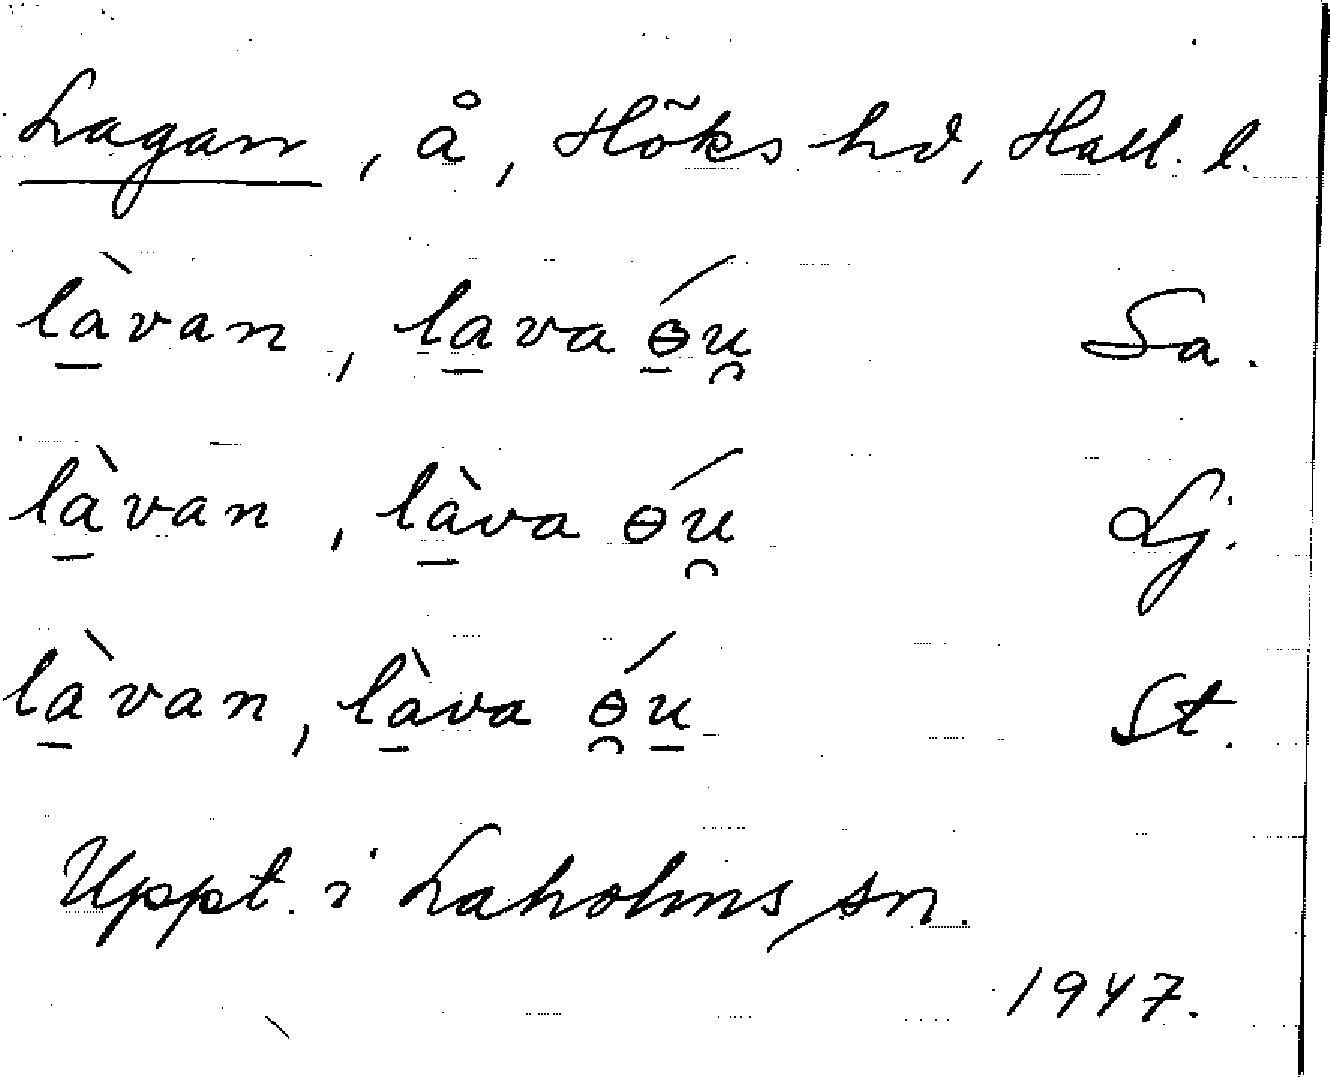 Lagan, å, Höks hd, Hall. l.
là̱van, la̱va ɵ̱́u̯ Sa.
là̱van, là̱va ɵ́u̯ Lj.
là̱van, là̱va ɵ̯́u̱ St.
Uppt. i Laholms sn.
1947.